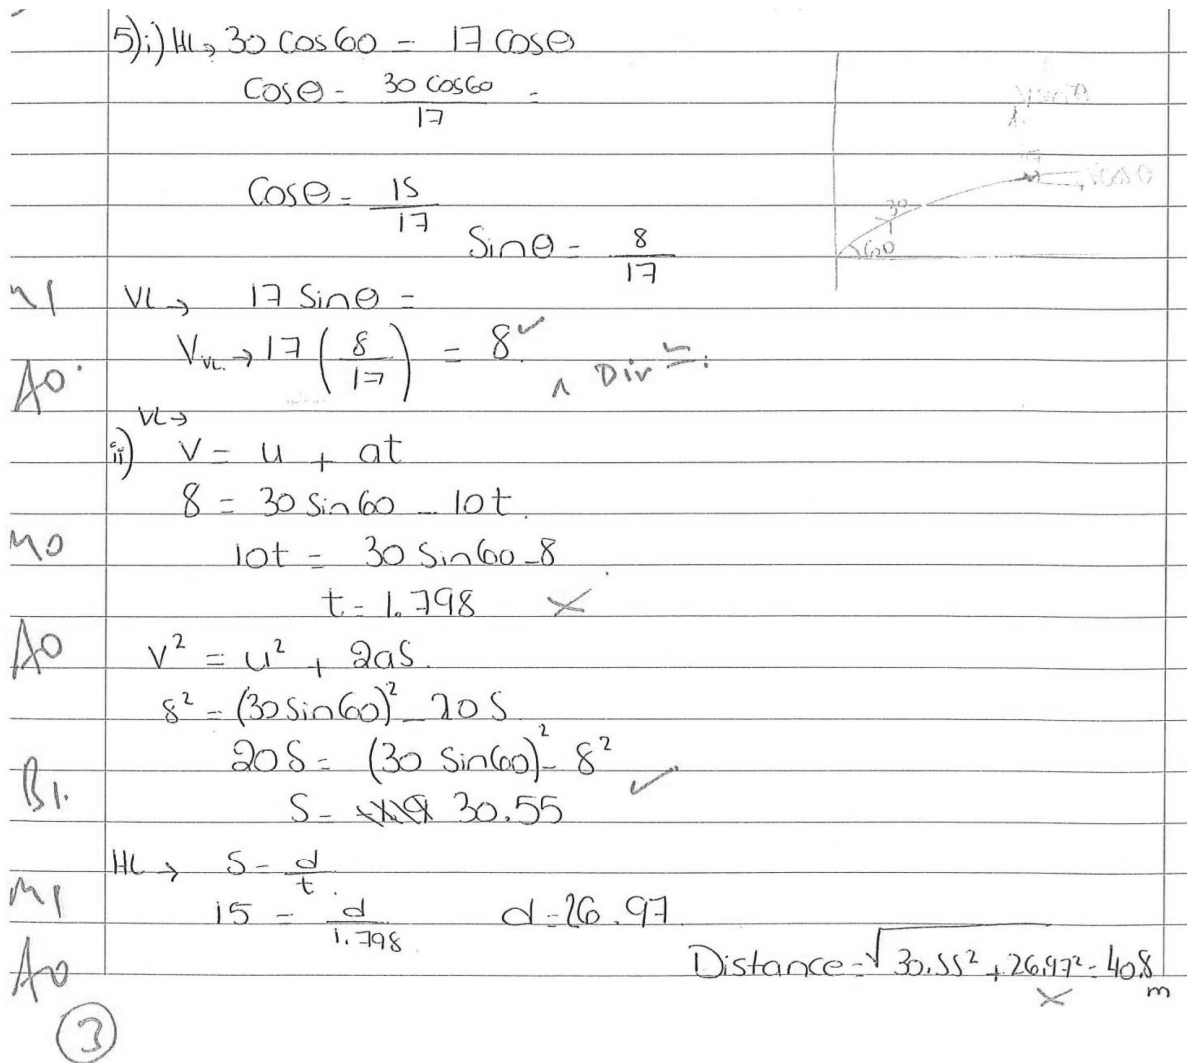 5)i) HL→ 30 cos60 = 17 cosθ
Cosθ = 30 cos60 / 17 =
Cosθ = 15/17
Sinθ = 8/17
30
60
M1 VL→ 17 Sinθ =
V_VL → 17 (8/17) = 8 ✓
A0. ∧ Dir
ii) VL→
V = u + at
8 = 30 Sin60 - 10t
M0 10t = 30 Sin60 - 8
t = 1.798 ✗
A0 V² = u² + 2as.
8² = (30 sin60)² - 20S
20S = (30 Sin60)² - 8²
B1. S = 30.55 ✓
HL→ S = d/t.
M1 15 = d/1.798 d = 26.97
A0 Distance = √30.55² + 26.97² = 40.8 m ✗
3